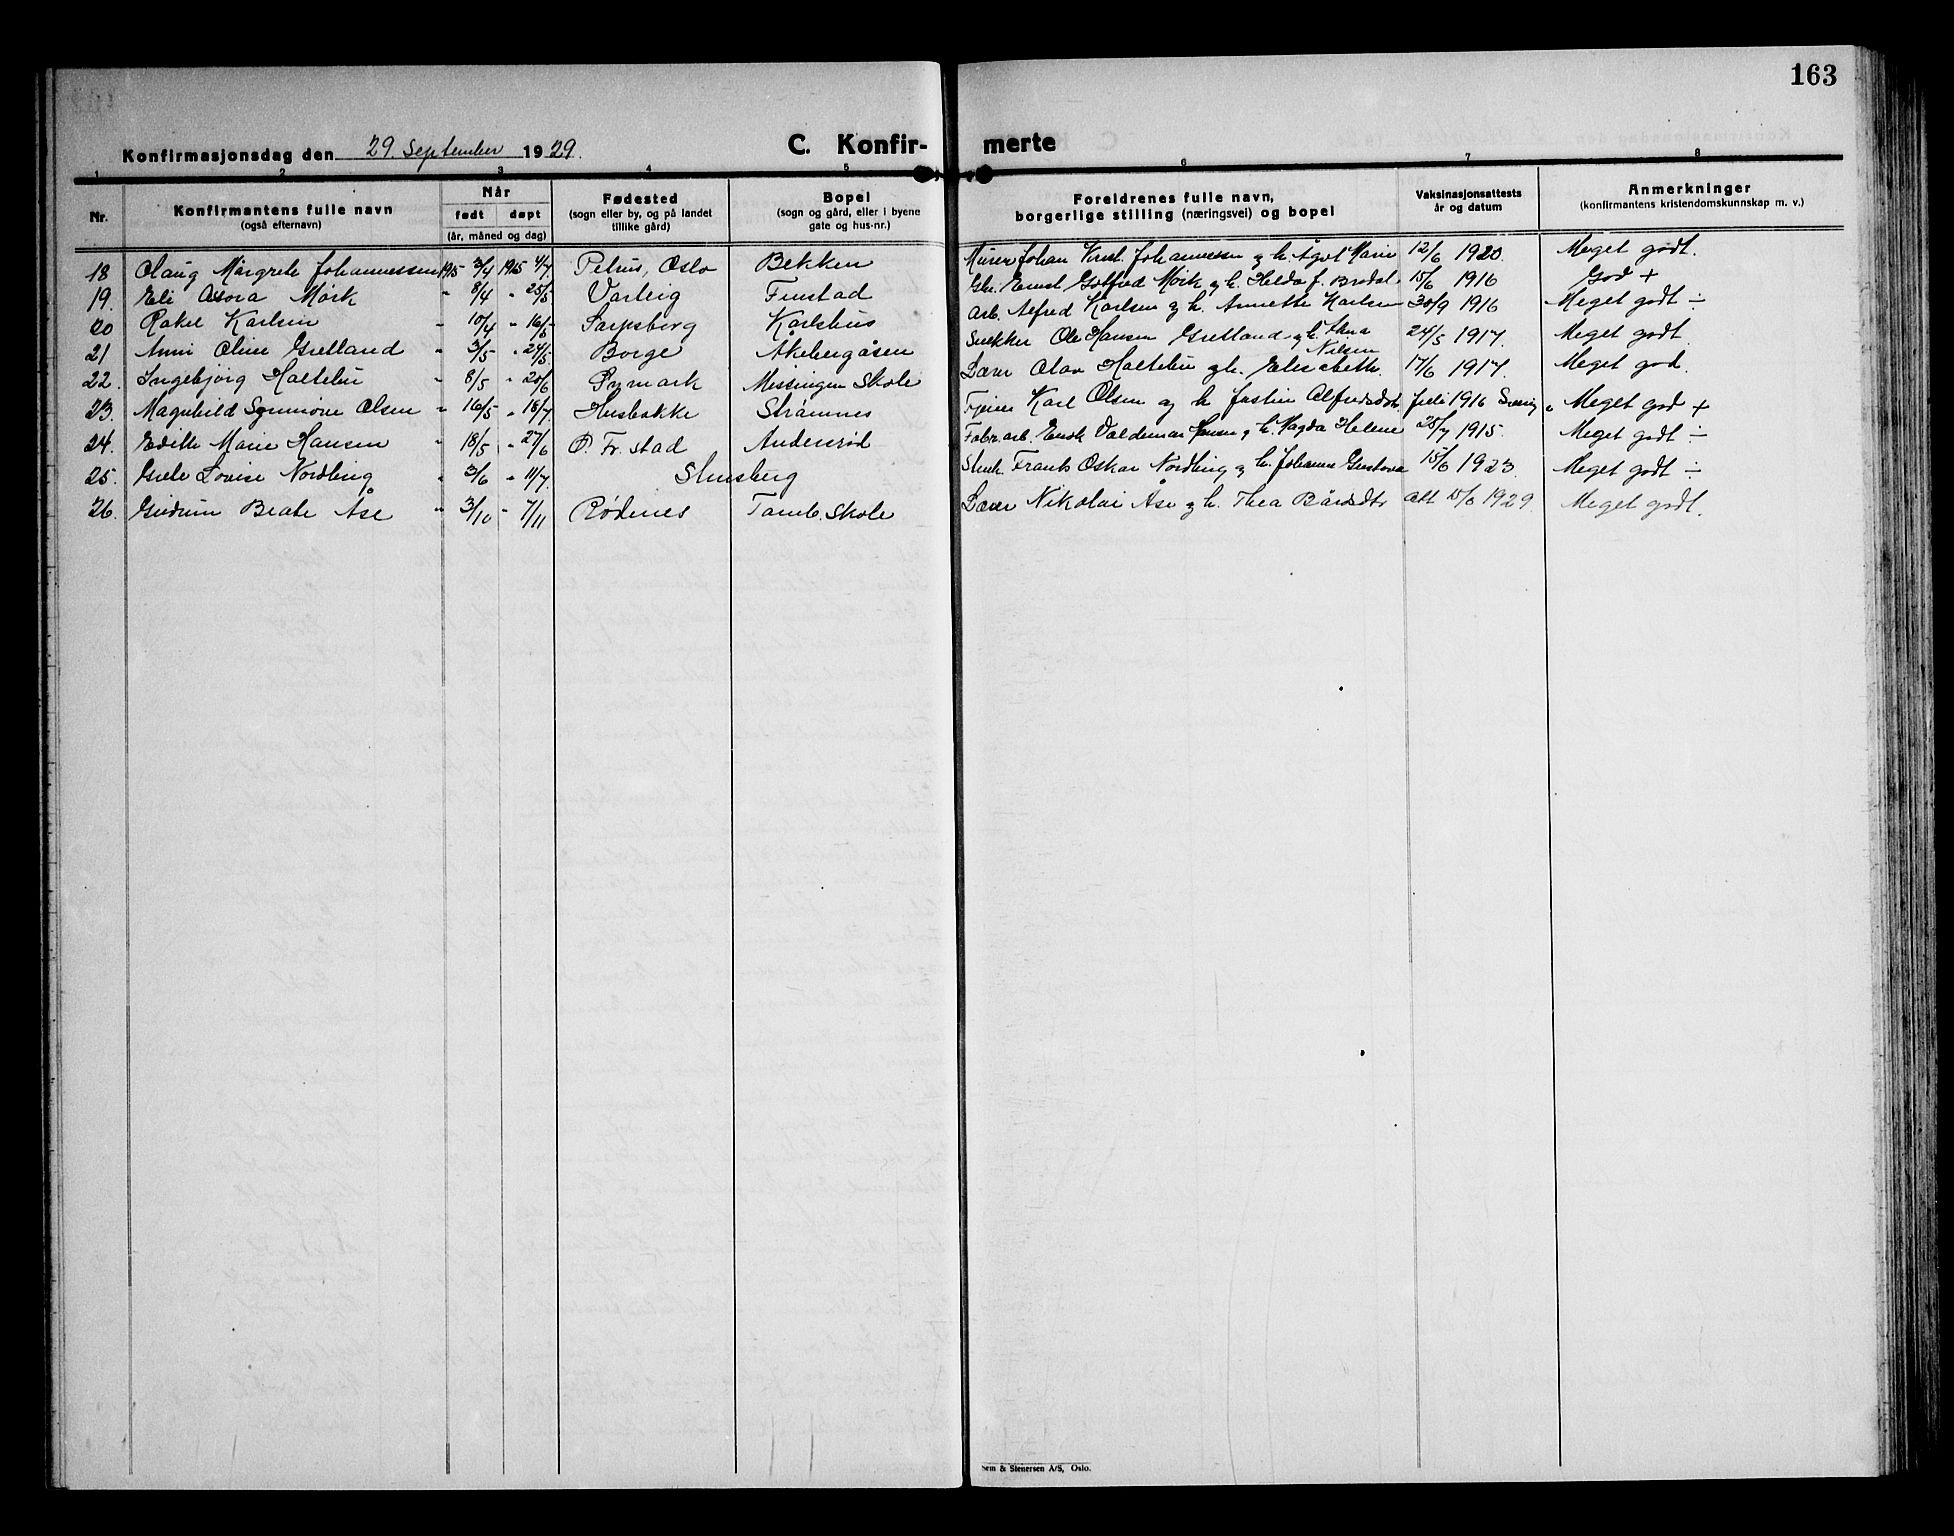 163
Konfirmasjonsdag den 29. September 1929.
C. Konfir- merte
1 2 3 4 5 6 7 8
Nr.
Konfirmantens fulle navn
(også efternavn)
Når
født døpt
(år, måned og dag)
Fødested
(sogn eller by, og på landet
tillike gård)
Bopel
(sogn og gård, eller i byene
gate og hus-nr.)
Foreldrenes fulle navn,
borgerlige stilling (næringsvei) og bopel
Vaksinasjonsattests
år og datum
Anmerkninger
(konfirmantens kristendomskunnskap m. v.)
18 Olaug Margrete Johannessen 1915 3/4 1915 4/7 Petrus, Oslo Bekken Murer Johan Krist. Johannessen og h. Marie 12/6 1920 Meget godt.
19. Eli Mørk " 8/4 " 25/5 Varteig Finstad Ernst Gotfred Mørk og h. Helda f. Brodal 15/6 1916 God +
20 Rakel Karlsen " 10/4 " 16/5 Sarpsborg Karlshus Arb. Alfred Karlsen og h. Annette Karlsen 30/9 1916 Meget godt ÷
21 Anni Oline Gretland " 3/5 " 24/5 Borge Åkebergåsen Snekker Ole Hansen Gretland og h. Nilsen 24/5 1917. Meget godt.
22. Ingebjørg " 8/5 " 20/6 Rymark Missingen Skole Lærer Olav og h. Elisabeth. 17/6 1917. Meget god.
23. Magnhild Synnøve Olsen " 16/5 " 18/7 Husbakke Strømnes Karl Olsen og h. Justine Alfredsdtr. Juli 1916 Meget god +
24. Edith Marie Hansen " 18/5 " 27/6 Ø. Fr.stad Andersrød Fabr.arb. Valdemar Hansen og h. Magda Helene 25/7 1915. Meget godt ÷
25. Grete Lovise Nordling " 3/6 " 11/7 Slensberg Frants Oskar Nordling og h. Johanne Gustava 15/6 1923 Meget godt ÷
26. Gudrun Beate Åse " 3/10 " 7/11 Rødenes Tomb. Skole Lærer Nikolai Åse og h. Thea Bårdsdtr Att 15/6 1929 Meget godt.
Sem & Stenersen A/S, Oslo.